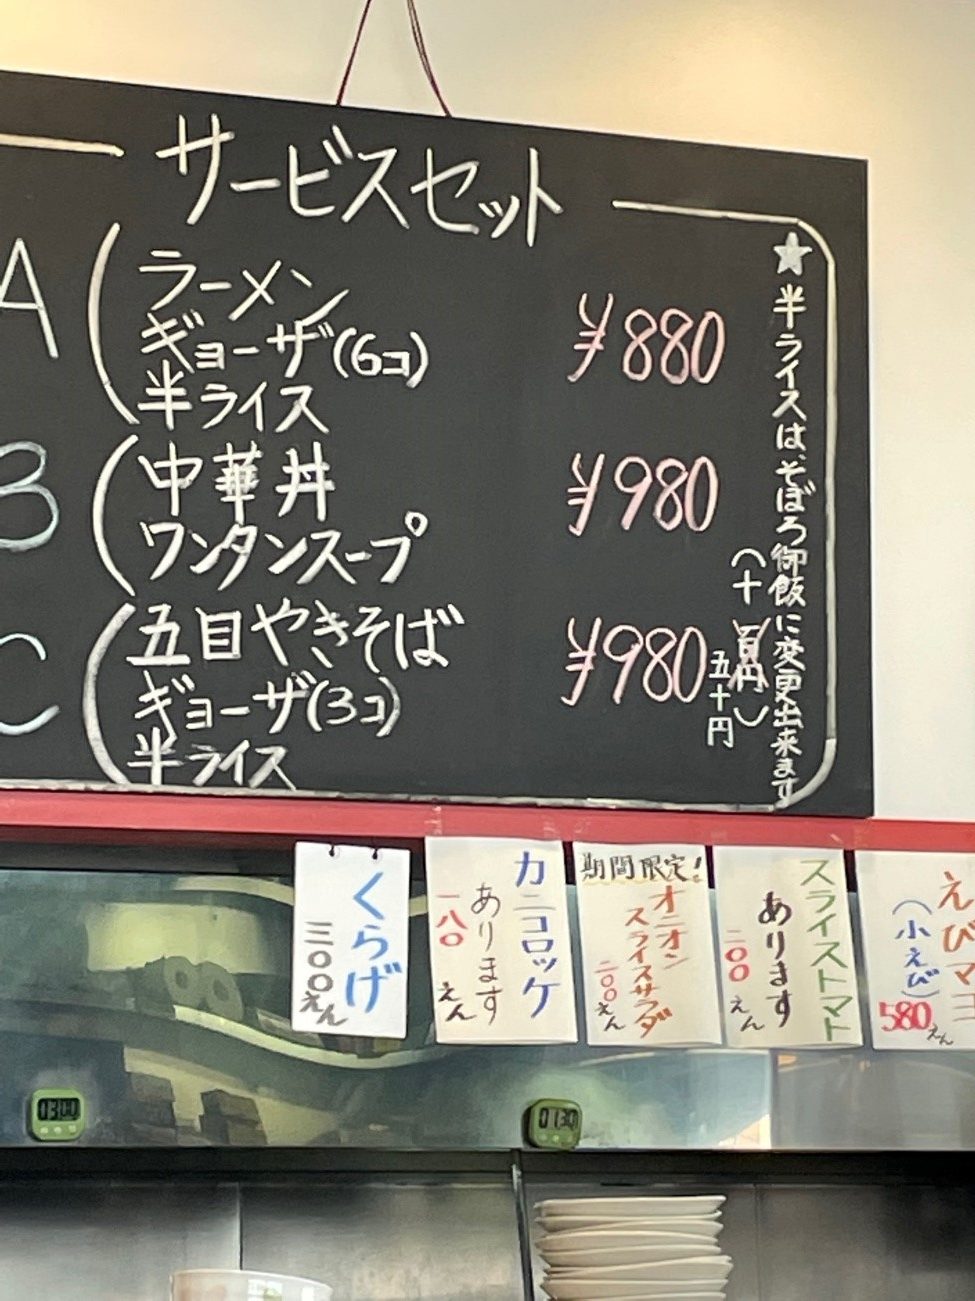 サービスセット
A
ラーメン
ギョーザ(6コ)
半ライス
¥880
B
中華丼
ワンタンスープ
¥980
C
五目やきそば
ギョーザ(3コ)
半ライス
¥980
★半ライスは、そぼろ御飯に変更出来ます
(十百円)
五十円
くらげ
三〇〇えん
カニコロッケ
あります
一八〇えん
期間限定!
オニオン
スライスサラダ
二〇〇えん
スライストマト
あります
二〇〇えん
えびマヨ
(小えび)
580えん
03:00
01:30